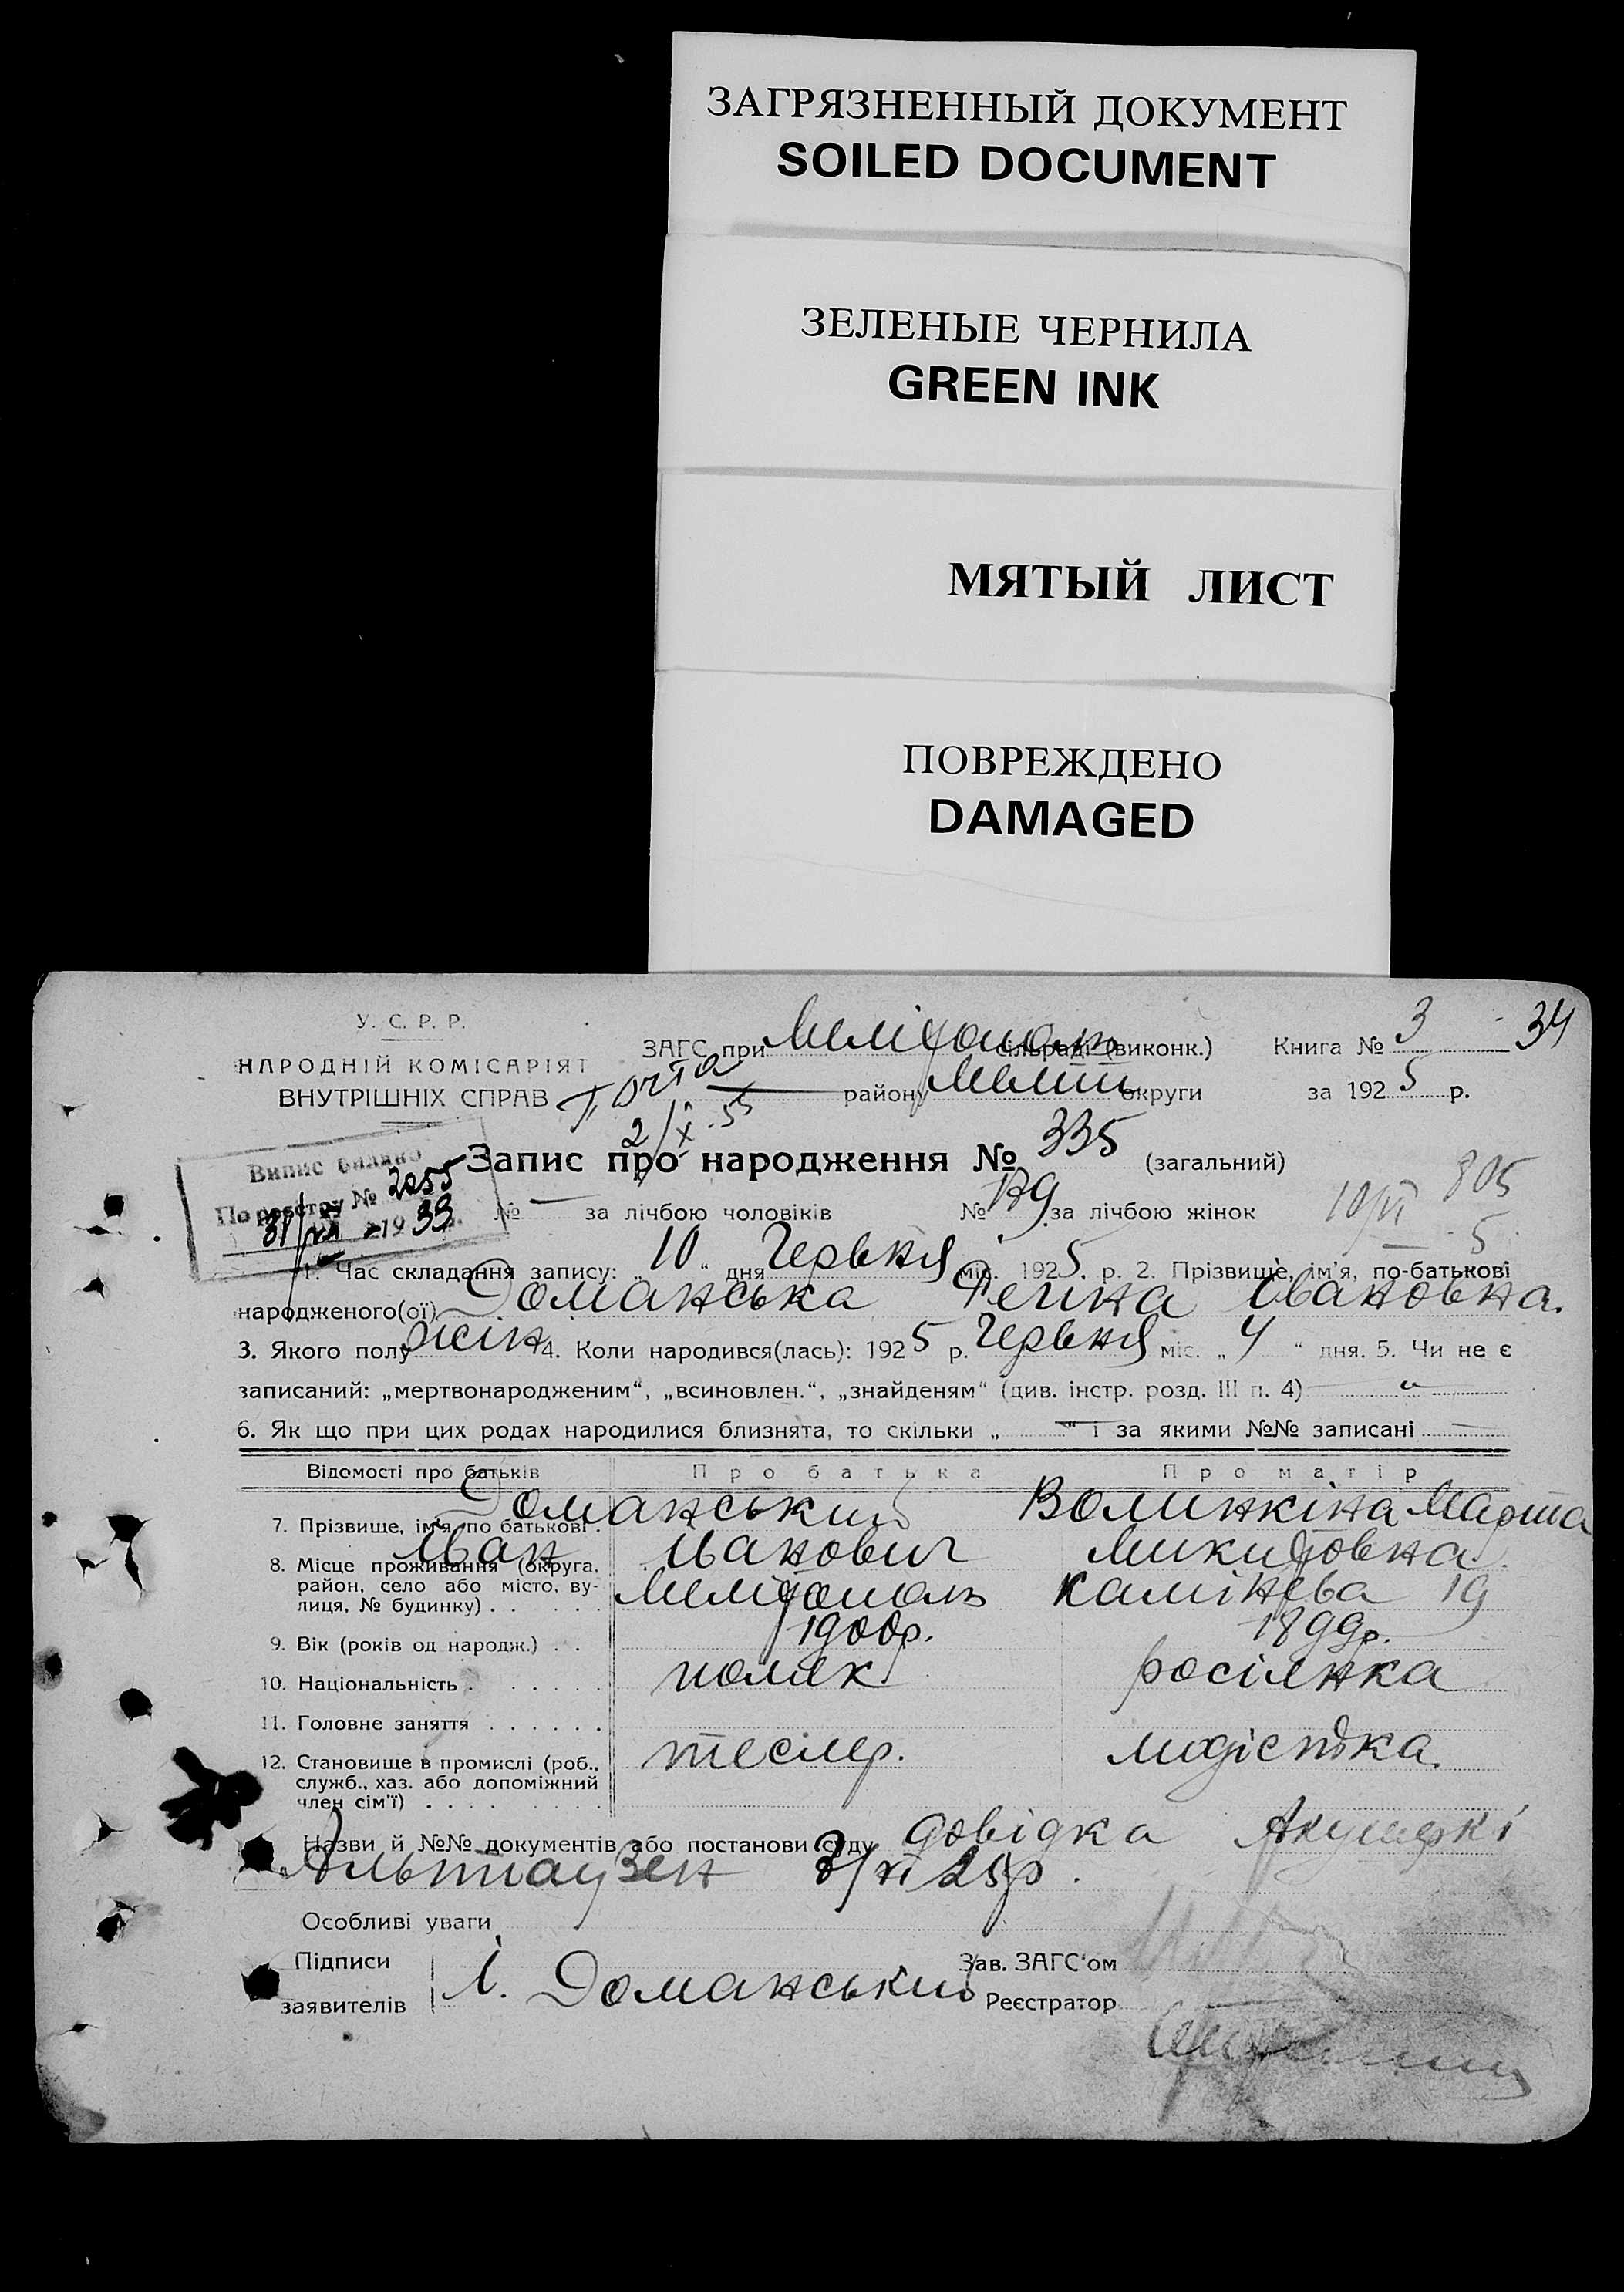 ЗАГРЯЗНЕННЫЙ ДОКУМЕНТ
SOILED DOCUMENT
ЗЕЛЕНЫЕ ЧЕРНИЛА
GREEN INK
МЯТЫЙ ЛИСТ
ПОВРЕЖДЕНО
DAMAGED
У. С. Р. Р.
НАРОДНІЙ КОМІСАРІЯТ
ВНУТРІШНІХ СПРАВ
ЗАГС при Меліт сільраді (виконк.) Книга № 3 34
району Меліт округи за 1925 р.
Почта
2/X-55
Випис видано
По реєстру № 2055
31/VII 1933 р.
Запис про народження № 335 (загальний)
№ — за лічбою чоловіків № 179 за лічбою жінок
10/VI 805
5
1. Час складання запису: „10“ дня Червня міс. 1925 р. 2. Прізвище, ім'я, по-батькові
народженого(ої) Доманська Регина Івановна.
3. Якого полу жін 4. Коли народився(лась): 1925 р. Червня міс. „4“ дня. 5. Чи не є
записаний: „мертвонародженим“, „всиновлен.“, „знайденям“ (див. інстр. розд. III п. 4) —
6. Як що при цих родах народилися близнята, то скільки „—“ і за якими №№ записані —
Відомості про батьків Про батька Про матір
7. Прізвище, ім'я, по батькові. Доманський Волинкіна Марта
Іван Іванович Микитовна
8. Місце проживання (округа, район, село або місто, вулиця, № будинку) . . Мелітополь Камінева 19
9. Вік (років од народж.) . . 1900р. 1899р.
10. Національність . . . . . . поляк росіянка
11. Головне заняття . . . . . .
12. Становище в промислі (роб., служб., хаз. або допоміжний член сім'ї) . . . . тесляр. модістка.
Назви й №№ документів або постанови суду довідка Акушеркі
Альтгаузен 8/VI 25р.
Особливі уваги
Підписи заявителів І. Доманський
Зав. ЗАГС'ом
Реєстратор